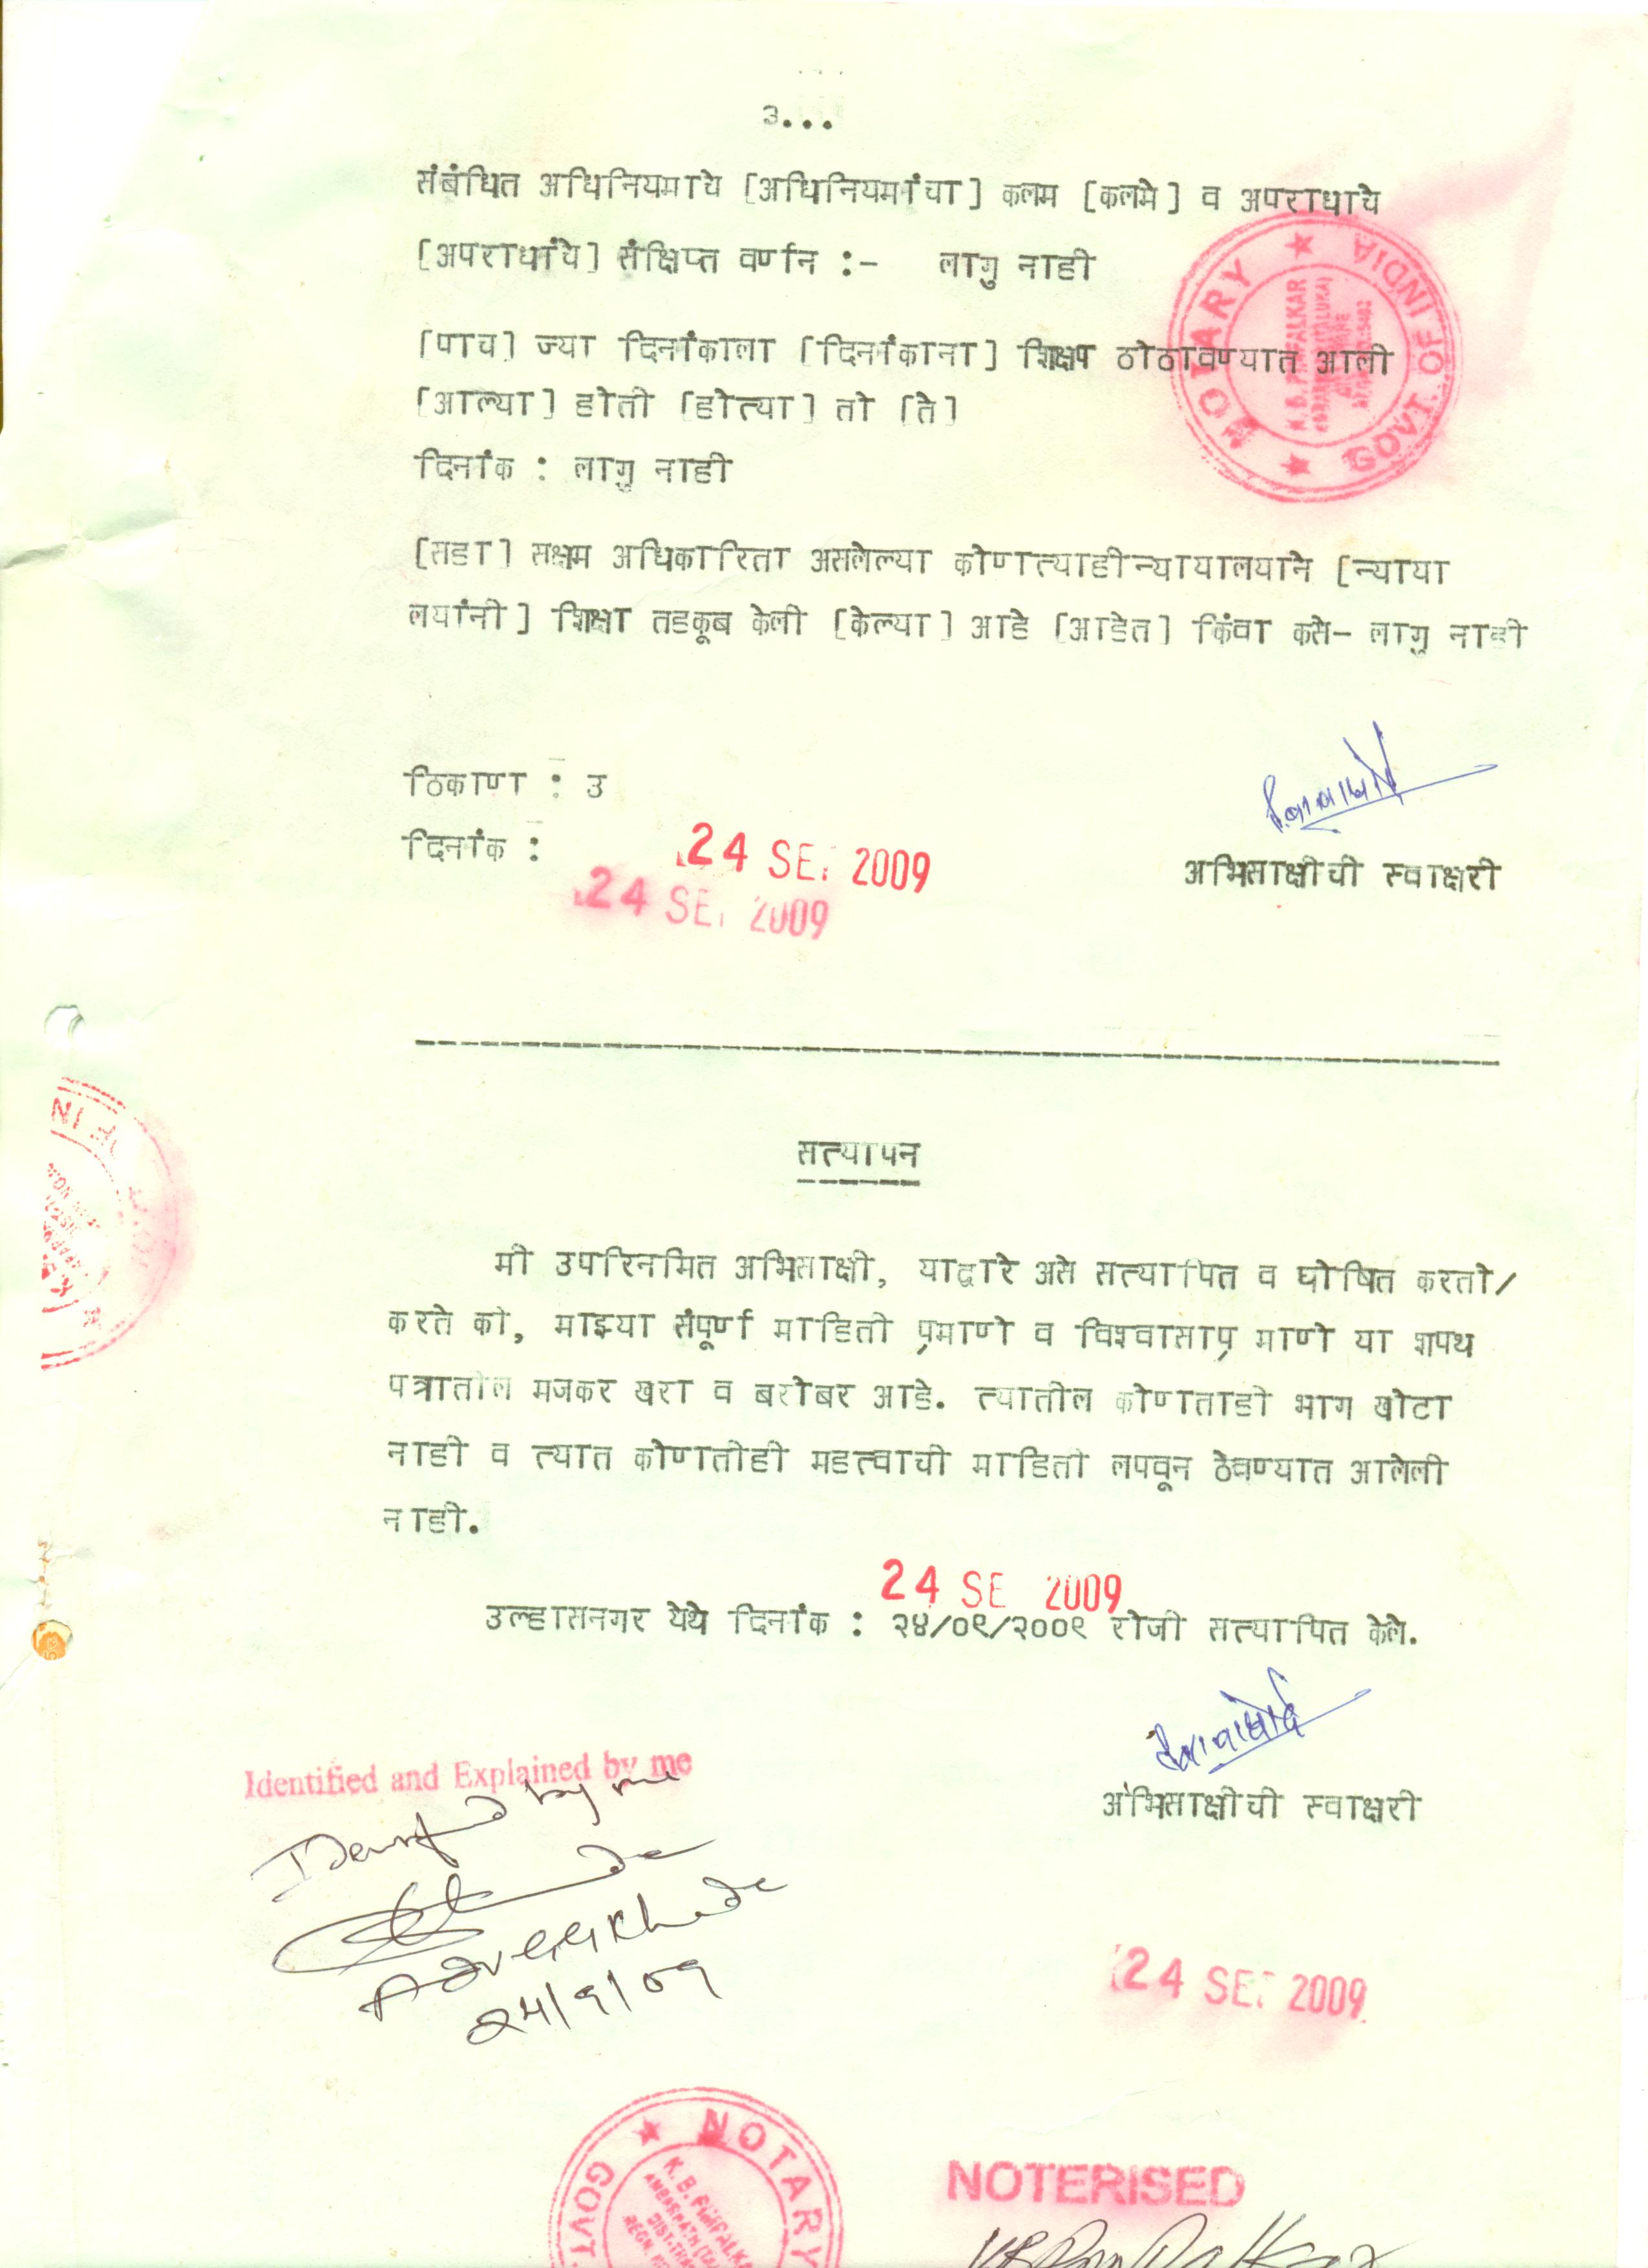 ३...
संबंधित अधिनियमाचे [अधिनियमांचा] कलम [कलमे] व अपराधाचे
[अपराधांचे] संक्षिप्त वर्णन :- लागु नाही
[पाच] ज्या दिनांकाला [दिनांकाना] शिक्षा ठोठावण्यात आली
[आल्या] होती [होत्या] तो [ते]
दिनांक : लागु नाही
[सहा] सक्षम अधिकारिता असलेल्या कोणत्याहीन्यायालयाने [न्याया
लयांनी] शिक्षा तहकूब केली [केल्या] आहे [आहेत] किंवा कसे- लागु नाही
NOTARY
GOVT. OF INDIA
ठिकाण : उ
दिनांक :
24 SE 2009
24 SE 2009
अभिसाक्षीची स्वाक्षरी
सत्यापन
मी उपरिनमित अभिसाक्षी, याद्वारे असे सत्यापित व घोषित करतो/
करते की, माझ्या संपूर्ण माहिती प्रमाणे व विश्वासाप्र माणे या शपथ
पत्रातील मजकर खरा व बरोबर आहे. त्यातील कोणताही भाग खोटा
नाही व त्यात कोणतीही महत्वाची माहिती लपवून ठेवण्यात आलेली
नाही.
24 SE 2009
उल्हासनगर येथे दिनांक : २४/०९/२००९ रोजी सत्यापित केले.
अभिसाक्षीची स्वाक्षरी
Identified and Explained by me
by me
24/9/09
24 SE 2009
NOTARY
GOVT.
K. B. PIMPALKAR
NOTERISED